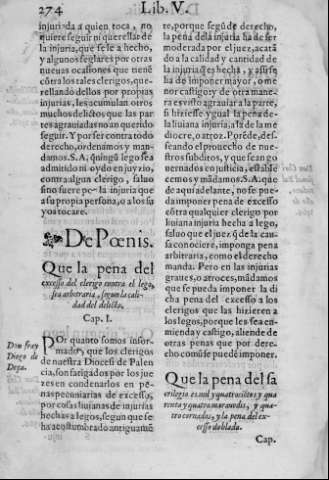 274
Lib. V.
injuriada a quien toca, no
quiere seguir ni querellar de
la injuria, que se le a hecho,
y algunos seglares por otras
nuevas ocasiones que tienē
cōtra los tales clerigos, que-
rellando dellos por propias
injurias, les acumulan otros
muchos delictos que las par
tes agraviadas no an querido
seguir. Y por ser contra todo
derecho, ordenámos y man-
damos. S. A, q̃ ningũ lego sea
admitido ni oydo en juyzio,
contra algun clerigo, salvo
sino fuere por la injuria que
a su propia persona, o a los su
yos tocare.
De Pœnis.
Que la pena del
excesso del clerigo contra el lego,
sea arbitraria, segun la cali-
dad del delicto.
Cap. I.
Don fray
Diego de
Deça.
POr quanto somos infor-
mados, que los clerigos
de nuestra Diocesi de Palen
cia, son fatigados por los jue
zes en condenarlos en pe-
nas pecuniarias de excesso,
por cosas livianas de injurias
hechas a legos, segun que se
ha acostumbrado antiguamē
te, porque segũ de derecho,
la pena de la injuria ha de ser
moderada por el juez, acatā
do a la calidad y cantidad de
la injuria q̃ es hecha, y assi en
ha de imponer mayor, o me
nor castigo y de otra mane-
ra es visto agraviar a la parte,
si hiziesse ygual la pena de
la liviana injuria, a la de la me
diocre, o atroz. Porēde, des-
seando el provecho de nue-
stros subditos, y que sean go
vernados en justicia, estable
cemos y mādamos. S. A. que
de aqui adelante, no se pue-
da imponer pena de excesso
cōtra qualquier clerigo por
liviana injuria hecha a lego,
salvo que el juez, q̃ de la cau
sa conociere, imponga pena
arbitraria, como el derecho
manda. Pero en las injurias
graues, o atroces, mādamos
que se pueda imponer la di
cha pena del excesso a los
clerigos que las hizieren a
los legos, porque les sea en-
mienda y castigo, aliende de
otras penas que por dere-
cho comũ se puedē imponer.
Que la pena del sa
crilegio es mil y quatrocientos y qua
renta y quatro maravedis, y qua-
tro cornados, y la pena del ex-
cesso doblada.
Cap.